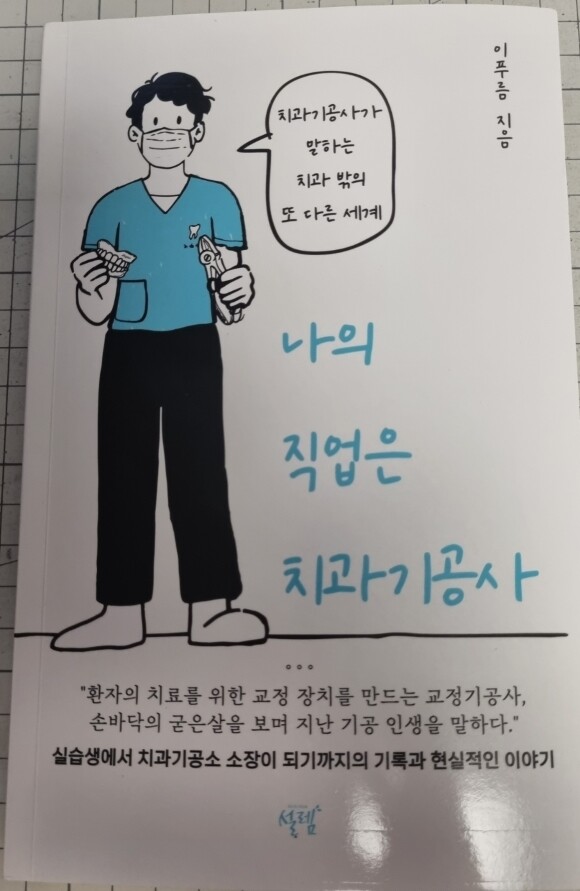 이푸름 지음
치과기공사가
말하는
치과 밖의
또 다른 세계
나의
직업은
치과기공사
"환자의 치료를 위한 교정 장치를 만드는 교정기공사,
손바닥의 굳은살을 보며 지난 기공 인생을 말하다."
실습생에서 치과기공소 소장이 되기까지의 기록과 현실적인 이야기
설렘